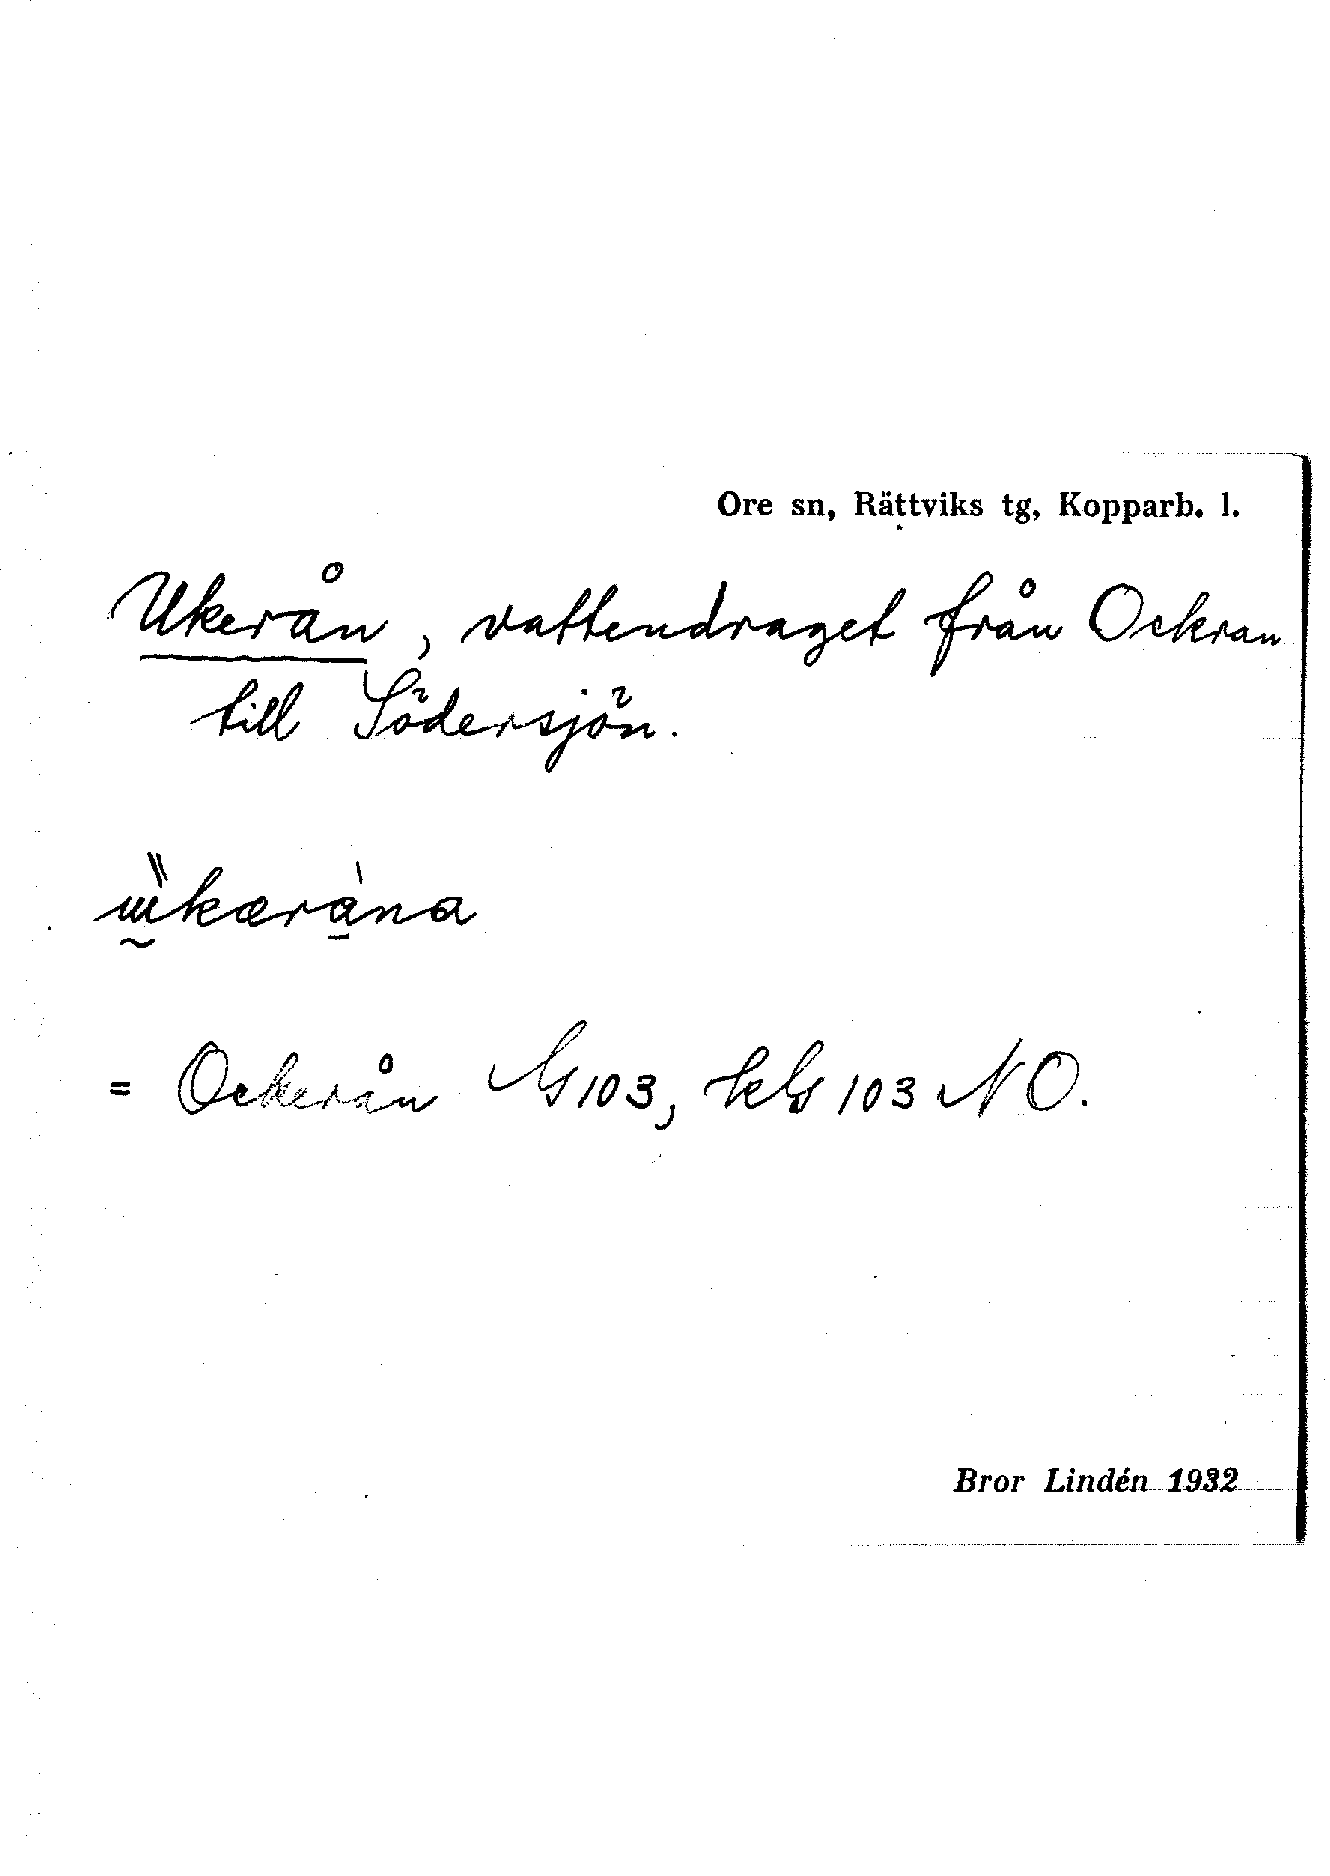 Ore sn, Rättviks tg, Kopparb. l.
Ukerån, vattendraget från Ockran
till Södersjön.
= Ockerån G103, kG 103 NO.
Bror Lindén 1932